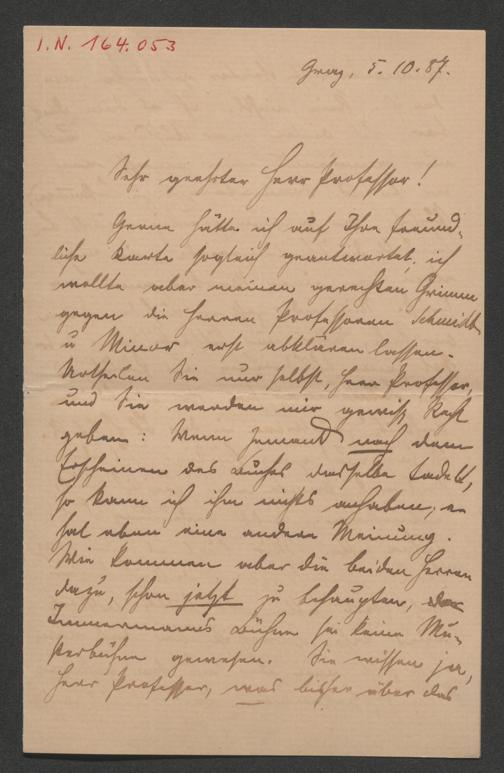 I.N. 164.053
Graz, 5. 10. 87.
Sehr geehrter Herr Professor!
Gerne hätte ich auf Ihre freund-
liche Karte sogleich geantwortet; ich
wollte aber meinen gerechten Grimm
gegen die Herren Professoren Schmidt
u Minor erst abklären lassen.
Urtheilen Sie nur selbst, Herr Professor,
und Sie werden mir gewiß Recht
geben: Wenn Jemand nach dem
Erscheinen des Buches dasselbe tadelt,
so kann ich ihm nichts anhaben, er
hat eben eine andere Meinung.
Wie kommen aber die beiden Herren
dazu, schon jetzt zu behaupten,
Immermanns Bühne sei keine Mu-
sterbühne gewesen. Sie wissen ja,
Herr Professor, was bisher über das